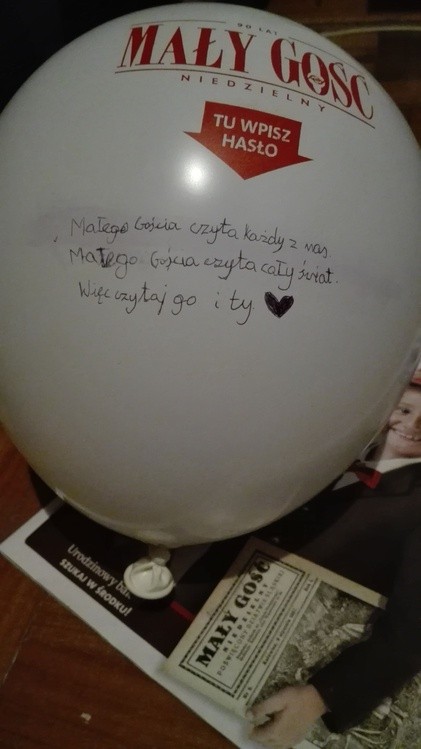 90 LAT
MAŁY GOŚĆ
NIEDZIELNY
TU WPISZ
HASŁO
Małego Gościa czyta każdy z nas
Małego Gościa czyta cały świat.
Więc czytaj go i ty. ♥
Urodzinowy
SZUKAJ W ŚRODKU!
MAŁY GOŚĆ
NIEDZIELNY